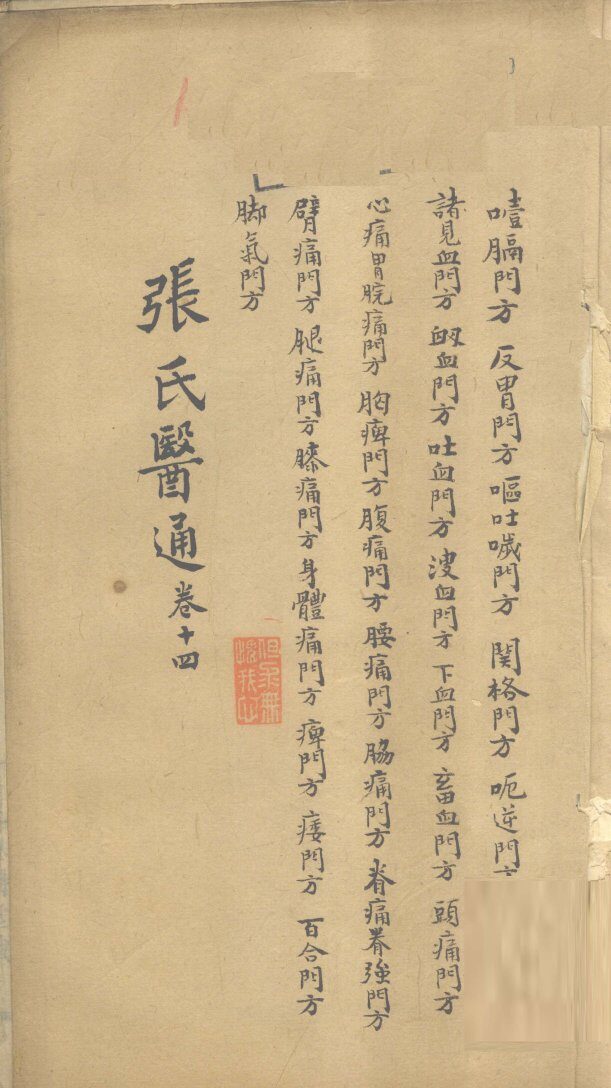 噎膈門方 反胃門方 嘔吐噦門方 関格門方 呃逆門方
諸見血門方 衂血門方 吐血門方 溲血門方 下血門方 畜血門方 頭痛門方
心痛胃脘痛門方 胸痺門方 腹痛門方 腰痛門方 脇痛門方 脊痛脊強門方
臂痛門方 腿痛門方 膝痛門方 身體痛門方 痺門方 痿門方 百合門方
脚氣門方
張氏醫通 卷十四